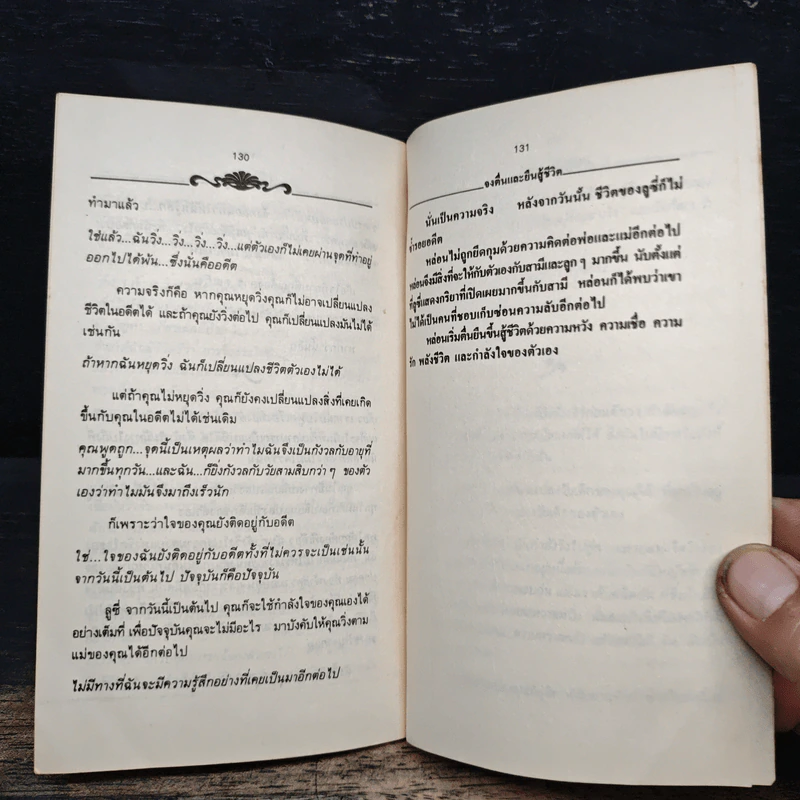 130
ทำมาแล้ว
ใช่แล้ว...ฉันวิ่ง...วิ่ง...วิ่ง...วิ่ง...แต่ตัวเองก็ไม่เคยผ่านจุดที่ทำอยู่
ออกไปได้พ้น...ซึ่งนั่นคืออดีต
ความจริงก็คือ หากคุณหยุดวิ่งคุณก็ไม่อาจเปลี่ยนแปลง
ชีวิตในอดีตได้ และถ้าคุณยังวิ่งต่อไป คุณก็เปลี่ยนแปลงมันไม่ได้
เช่นกัน
ถ้าหากฉันหยุดวิ่ง ฉันก็เปลี่ยนแปลงชีวิตตัวเองไม่ได้
แต่ถ้าคุณไม่หยุดวิ่ง คุณก็ยังคงเปลี่ยนแปลงสิ่งที่เคยเกิด
ขึ้นกับคุณในอดีตไม่ได้เช่นเดิม
คุณพูดถูก...จุดนี้เป็นเหตุผลว่าทำไมฉันจึงเป็นกังวลกับอายุที่
มากขึ้นทุกวัน...และฉัน...ก็ยิ่งกังวลกับวัยสามสิบกว่า ๆ ของตัว
เองว่าทำไมมันจึงมาถึงเร็วนัก
ก็เพราะว่าใจของคุณยังติดอยู่กับอดีต
ใช่...ใจของฉันยังติดอยู่กับอดีตทั้งที่ไม่ควรจะเป็นเช่นนั้น
จากวันนี้เป็นต้นไป ปัจจุบันก็คือปัจจุบัน
ลูซี่ จากวันนี้เป็นต้นไป คุณก็จะใช้กำลังใจของคุณเองได้
อย่างเต็มที่ เพื่อปัจจุบันคุณจะไม่มีอะไร มาบังคับให้คุณวิ่งตาม
แม่ของคุณได้อีกต่อไป
ไม่มีทางที่ฉันจะมีความรู้สึกอย่างที่เคยเป็นมาอีกต่อไป
131
จงตื่นและยืนสู้ชีวิต
นั่นเป็นความจริง หลังจากวันนั้น ชีวิตของลูซี่ก็ไม่
ซ้ำรอยอดีต
หล่อนไม่ถูกยึดกุมด้วยความคิดต่อพ่อและแม่อีกต่อไป
หล่อนจึงมีสิ่งที่จะให้กับตัวเองกับสามีและลูก ๆ มากขึ้น นับตั้งแต่
ที่ลูซี่แสดงกริยาที่เปิดเผยมากขึ้นกับสามี หล่อนก็ได้พบว่าเขา
ไม่ได้เป็นคนที่ชอบเก็บซ่อนความลับอีกต่อไป
หล่อนเริ่มตื่นยืนขึ้นสู้ชีวิตด้วยความหวัง ความเชื่อ ความ
รัก พลังชีวิต และกำลังใจของตัวเอง